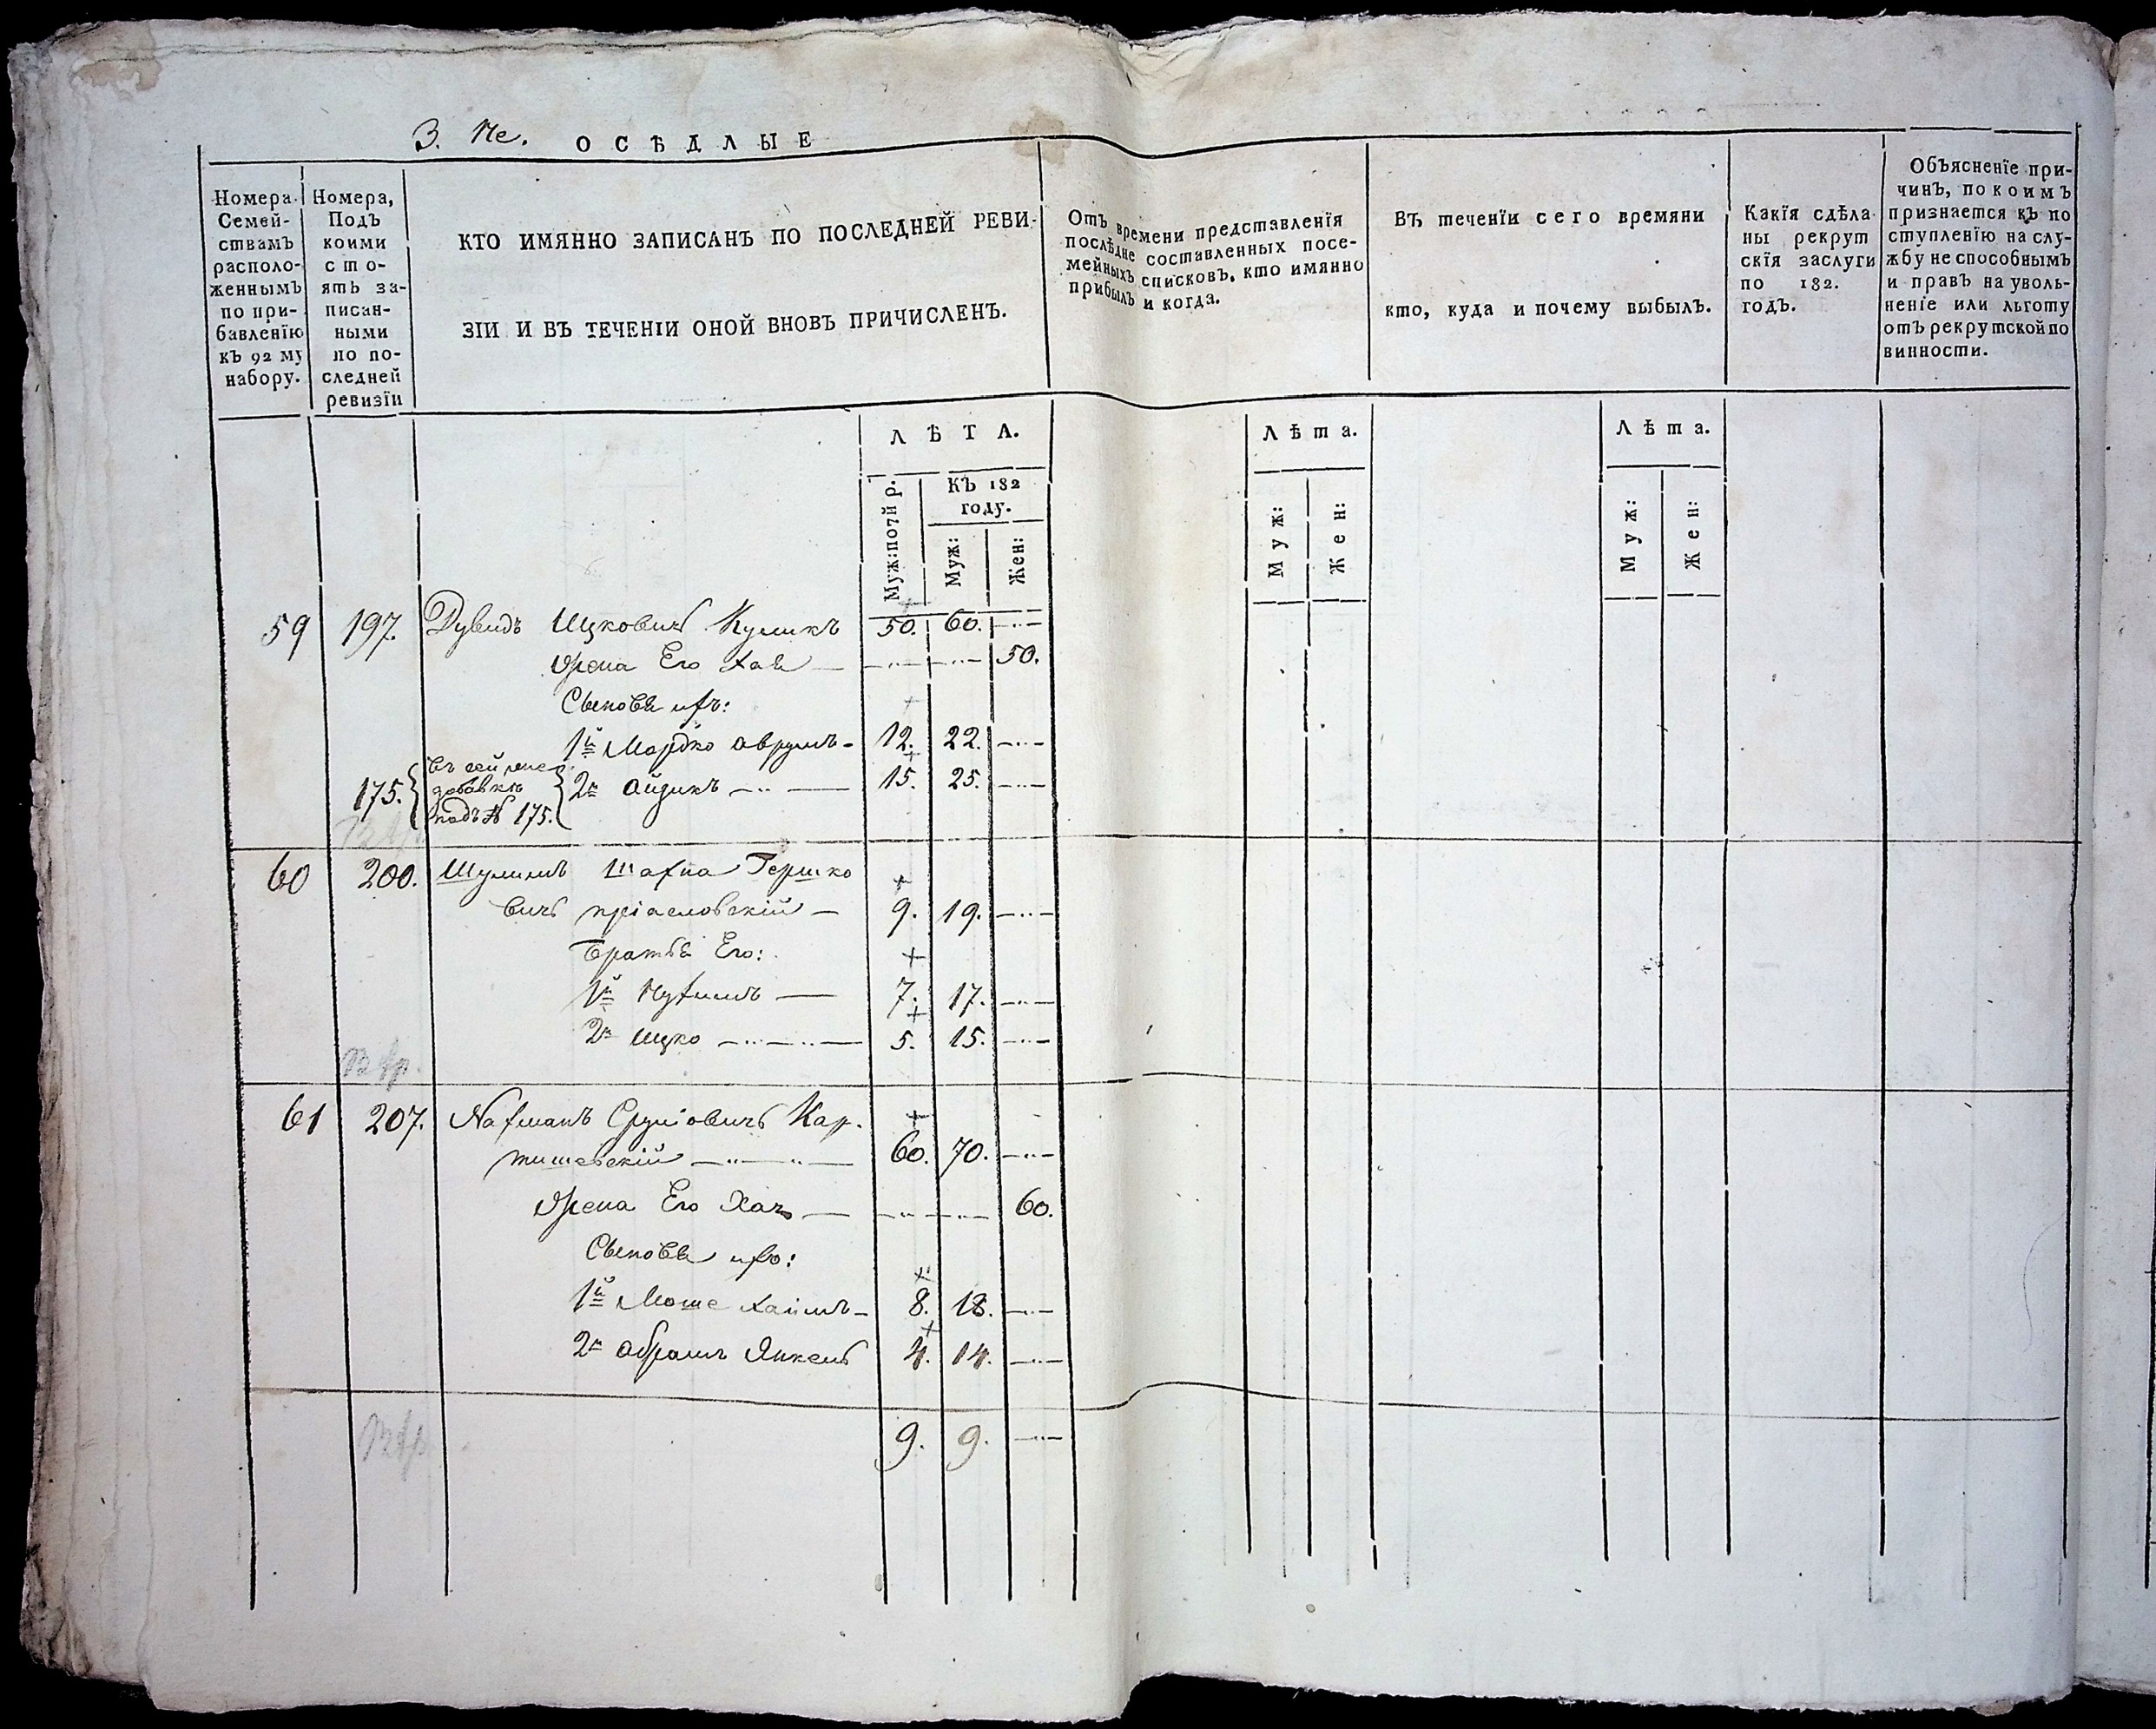 3. Не. ОСѢДЛЫЕ
Номера Семей-
ствамъ
располо-
женнымъ
по при-
бавленїю
къ 92 му
набору.
Номера,
Подъ
коими
сто-
ятъ за-
писан-
ными
по по-
следней
ревизїи
КТО ИМЯННО ЗАПИСАНЪ ПО ПОСЛЕДНЕЙ РЕВИ-
ЗІИ И ВЪ ТЕЧЕНІИ ОНОЙ ВНОВЪ ПРИЧИСЛЕНЪ.
Отъ времени представленїя
послѣдне составленныхъ посе-
мейныхъ списковъ, кто имянно
прибылъ и когда.
Въ теченїи сего времяни
кто, куда и почему выбылъ.
Какїя сдѣла-
ны рекрут
скїя заслуги
по 182.
годъ.
Объясненїе при-
чинъ, по коимъ
признается къ по
ступленїю на слу-
жбу не способнымъ
и правъ на уволь-
ненїе или льготу
отъ рекрутской по
винности.
ЛѢТА.
Муж: по 7й р.
КЪ 182
году.
Муж:
Жен:
Лѣта.
Муж:
Жен:
Лѣта.
Муж:
Жен:
59 197. Дувидъ Ицковичъ Куликъ 50. 60.
жена Его Хая 50.
Сыновья ихъ:
1й Мордко Аврумъ 12. 22.
175. въ сей же
добавкѣ
подъ № 175. 2й Айзикъ 15. 25.
60 200. Шулимъ Шахна Гершко
вичъ 9. 19.
Братья Его:
1й Нухимъ 7. 17.
2й Ицко 5. 15.
61 207. Нахманъ Сруліовичъ Кар-
тишевскій 60. 70.
жена Его Хая 60.
Сыновья ихъ:
1й Моше Хаимъ 8. 18.
2й Абрамъ Янкель 4. 14.
9. 9.